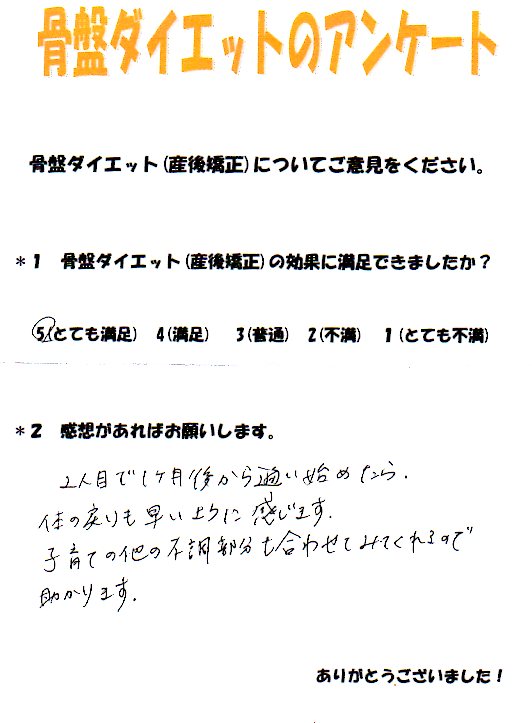 骨盤ダイエットのアンケート
骨盤ダイエット(産後矯正)についてご意見をください。
*1 骨盤ダイエット(産後矯正)の効果に満足できましたか?
5(とても満足) 4(満足) 3(普通) 2(不満) 1(とても不満)
*2 感想があればお願いします。
2人目で1ヶ月後から通い始めたら、
体の戻りも早いように感じます。
子育ての他の不調部分も合わせてみてくれるので
助かります。
ありがとうございました!